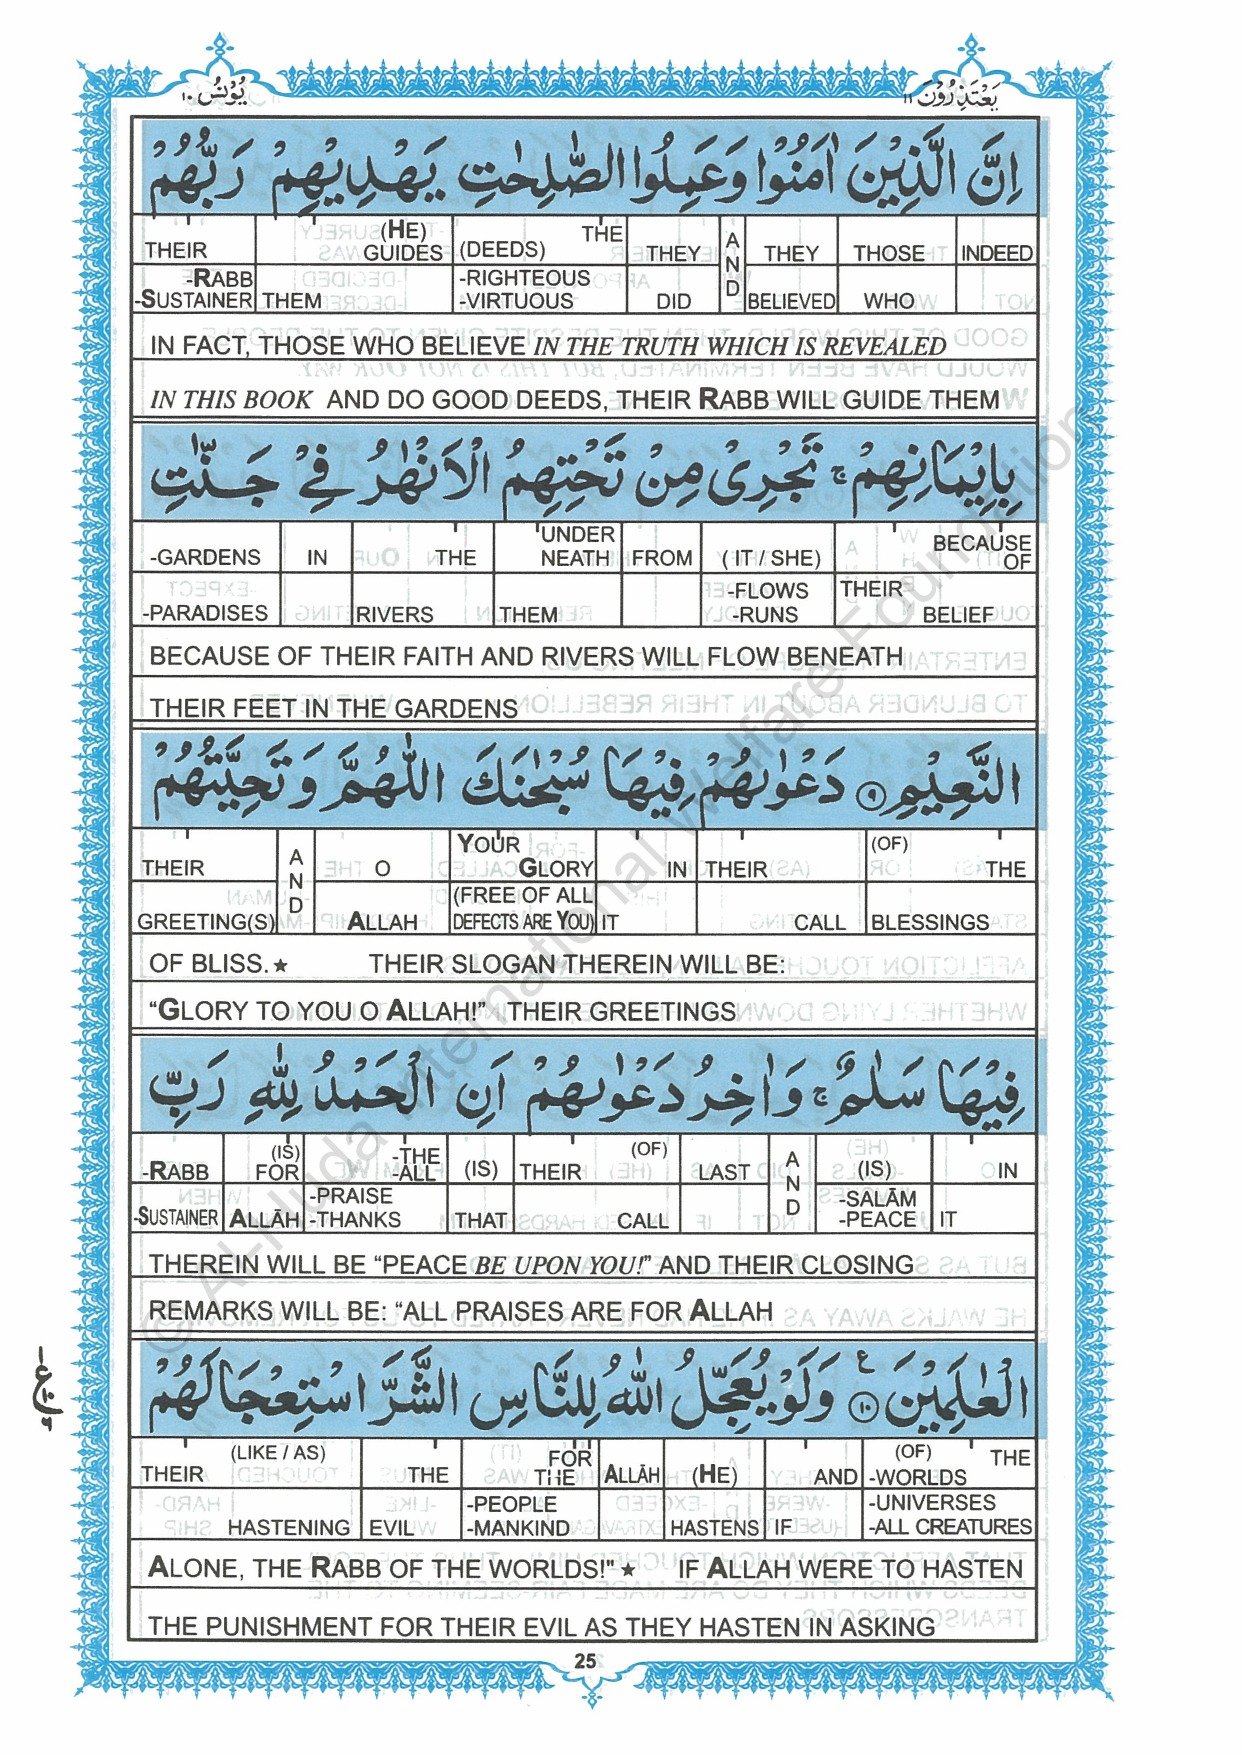 يُونُس ١٠
يَعْتَذِرُوْنَ ١١
اِنَّ الَّذِيْنَ اٰمَنُوْا وَعَمِلُوا الصّٰلِحٰتِ يَهْدِيْهِمْ رَبُّهُمْ
THEIR (HE) GUIDES (DEEDS) THE THEY AND THEY THOSE INDEED
-RABB -SUSTAINER THEM -RIGHTEOUS -VIRTUOUS DID BELIEVED WHO
IN FACT, THOSE WHO BELIEVE IN THE TRUTH WHICH IS REVEALED
IN THIS BOOK AND DO GOOD DEEDS, THEIR RABB WILL GUIDE THEM
بِاِيْمَانِهِمْ ۚ تَجْرِيْ مِنْ تَحْتِهِمُ الْاَنْهٰرُ فِيْ جَنّٰتِ
-GARDENS IN THE UNDER NEATH FROM (IT/ SHE) BECAUSE OF
-PARADISES RIVERS THEM -FLOWS -RUNS THEIR BELIEF
BECAUSE OF THEIR FAITH AND RIVERS WILL FLOW BENEATH
THEIR FEET IN THE GARDENS
النَّعِيْمِ ٩ دَعْوٰىهُمْ فِيْهَا سُبْحٰنَكَ اللّٰهُمَّ وَتَحِيَّتُهُمْ
THEIR AND O YOUR GLORY IN THEIR (OF) THE
GREETING(S) ALLAH (FREE OF ALL DEFECTS ARE YOU) IT CALL BLESSINGS
OF BLISS.★ THEIR SLOGAN THEREIN WILL BE:
“GLORY TO YOU O ALLAH!” THEIR GREETINGS
فِيْهَا سَلٰمٌ ۚ وَاٰخِرُ دَعْوٰىهُمْ اَنِ الْحَمْدُ لِلّٰهِ رَبِّ
-RABB (IS) FOR -THE -ALL (IS) THEIR (OF) LAST AND (IS) IN
-SUSTAINER ALLĀH -PRAISE -THANKS THAT CALL -SALĀM -PEACE IT
THEREIN WILL BE “PEACE BE UPON YOU!” AND THEIR CLOSING
REMARKS WILL BE: “ALL PRAISES ARE FOR ALLAH
الْعٰلَمِيْنَ ١٠ ع وَلَوْ يُعَجِّلُ اللّٰهُ لِلنَّاسِ الشَّرَّ اسْتِعْجَالَهُمْ
THEIR (LIKE / AS) THE FOR THE ALLĀH (HE) AND (OF) THE -WORLDS
HASTENING EVIL -PEOPLE -MANKIND HASTENS IF -UNIVERSES -ALL CREATURES
ALONE, THE RABB OF THE WORLDS!" ★ IF ALLAH WERE TO HASTEN
THE PUNISHMENT FOR THEIR EVIL AS THEY HASTEN IN ASKING
25
© Al-Huda International Welfare Foundation